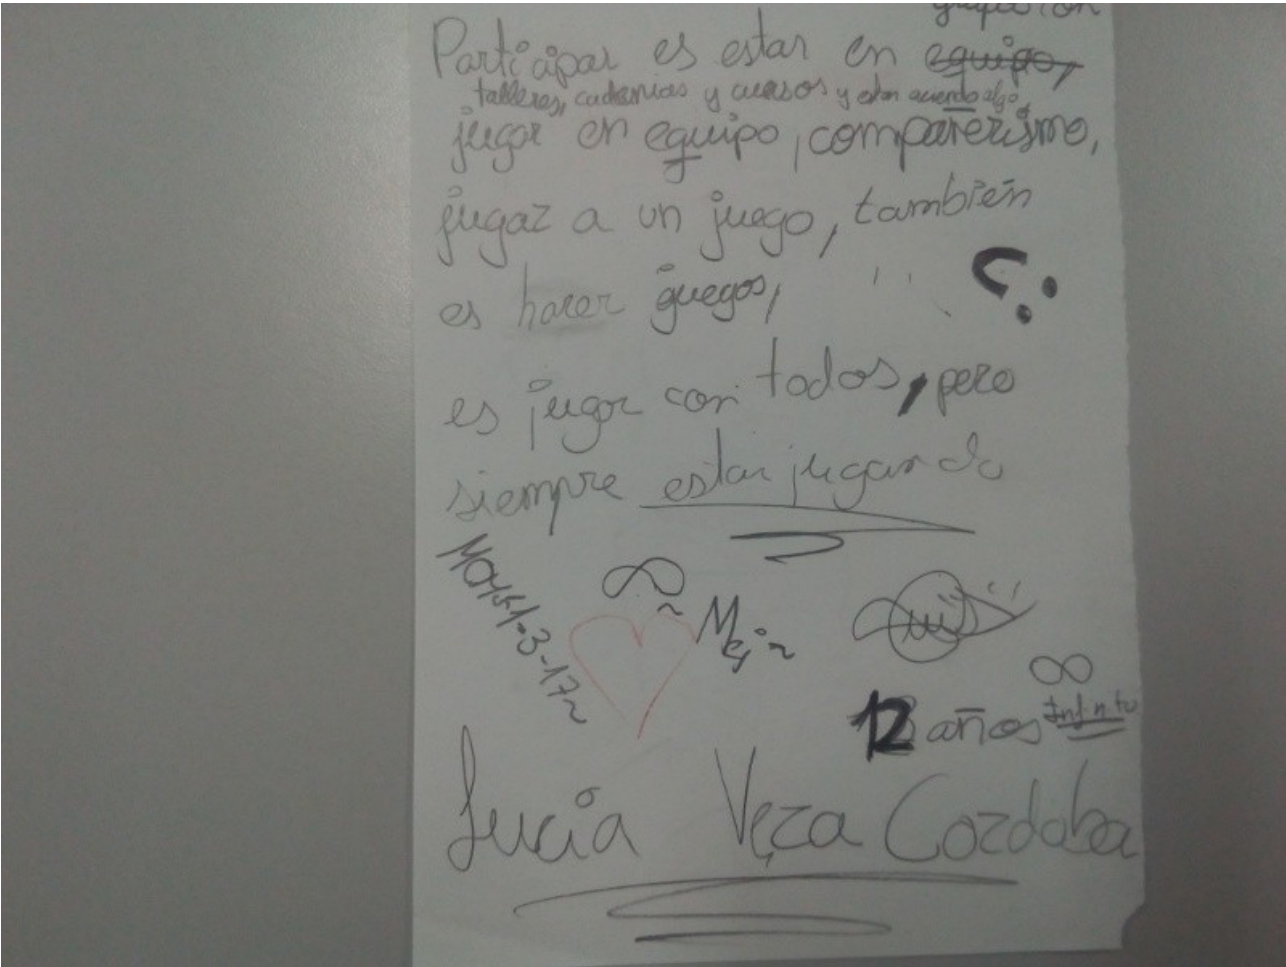 Participar es estar en equipo,
talleres, cademias y cursos y estar aciendo algo,
jugar en equipo, compañerismo,
jugar a un juego, también
es hacer guegos,
es jugar con todos, pero
siempre estar jugando
1-3-17
12 años Infinito
Lucía Vera Cordoba